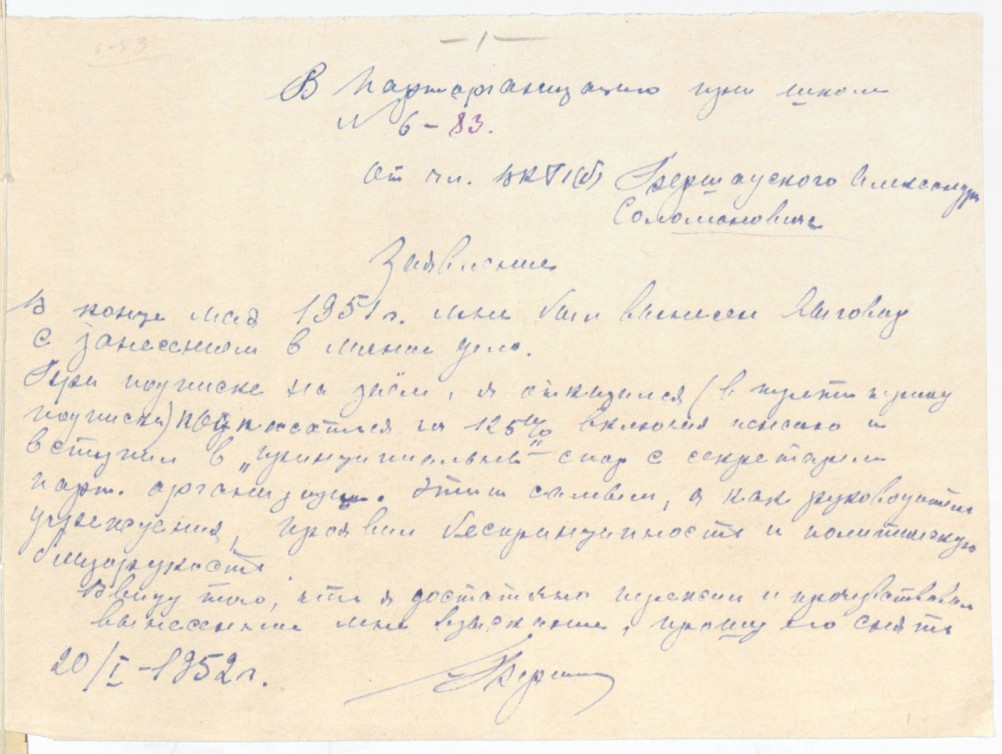 6-83
— 1 —
В Парторганизацию при школе
№ 6-83.
от чл. ВКП(б) Гершауского Александра
Соломоновича
Заявление
В конце мая 1951 г. мне был вынесен выговор
с занесением в личное дело.
При подписке на заём, я отказался (в пункте
подписки) подписаться на 125% включая пенсию и
вступил в „принципиальный" спор с секретарем
парт. организации. Этим самым, я как руководитель
учреждения, проявил беспринципность и политическую
близорукость.
Ввиду того, что я достаточно пережил и прочувствовал
вынесенное мне взыскание, прошу его снять
20/I-1952 г.